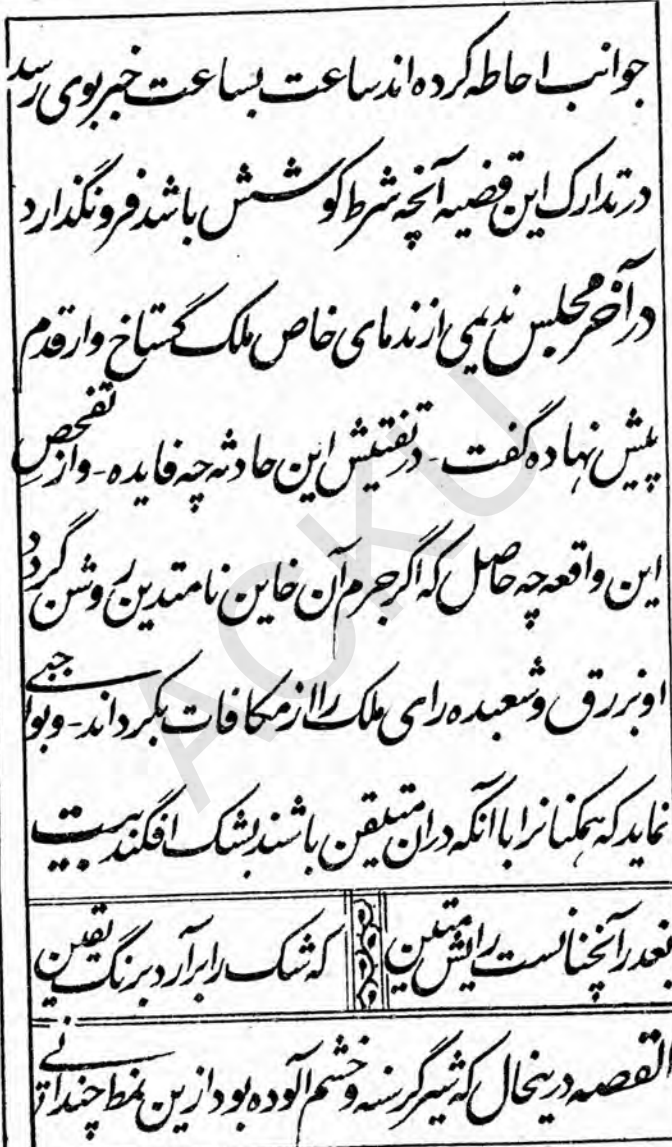 جوانب احاطه کرده اند ساعت بساعت خبر بوی رسد
در تدارک این قضیه آنچه شرط کوشش باشد فرو نگذارد
در آخر مجلس ندیمی از ندمای خاص ملک گستاخ وار قدم
پیش نهاده گفت - در تفتیش این حادثه چه فایده - و از تفحص
این واقعه چه حاصل که اگر جرم آن خاین نامتدین روشن گردد
او بزرق و شعبده رای ملک را از مکافات بگرداند - و بوا جبی
نماید که همکنانرا با آنکه دران متیقن باشند بشک افگند بیت
بعذر آنچنانست رایش متین
که شک را برآرد برنگ یقین
القصه درینحال که شیر گرسنه و خشم آلوده بود ازین نمط چندانی
ACKU